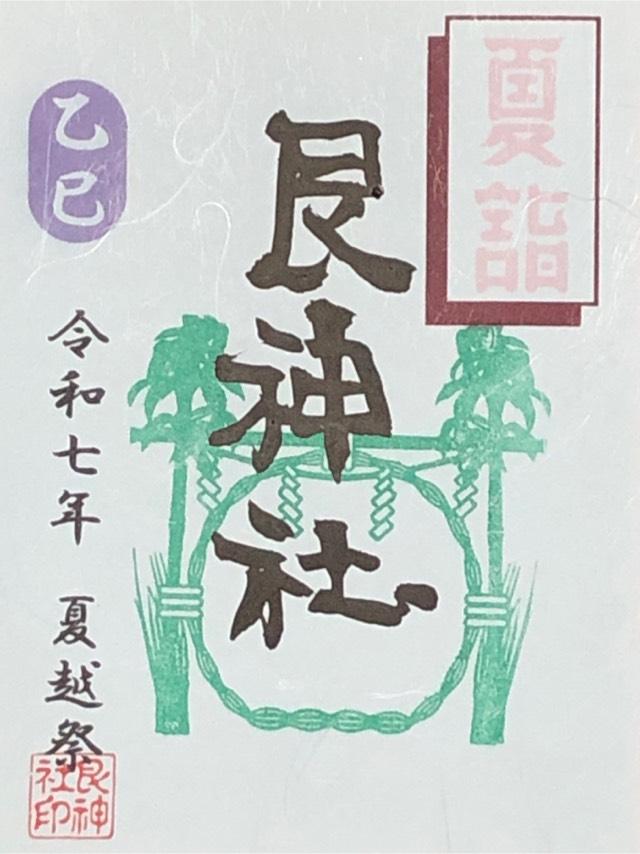 夏詣
艮神社
乙巳
令和七年 夏越祭
艮神
社印